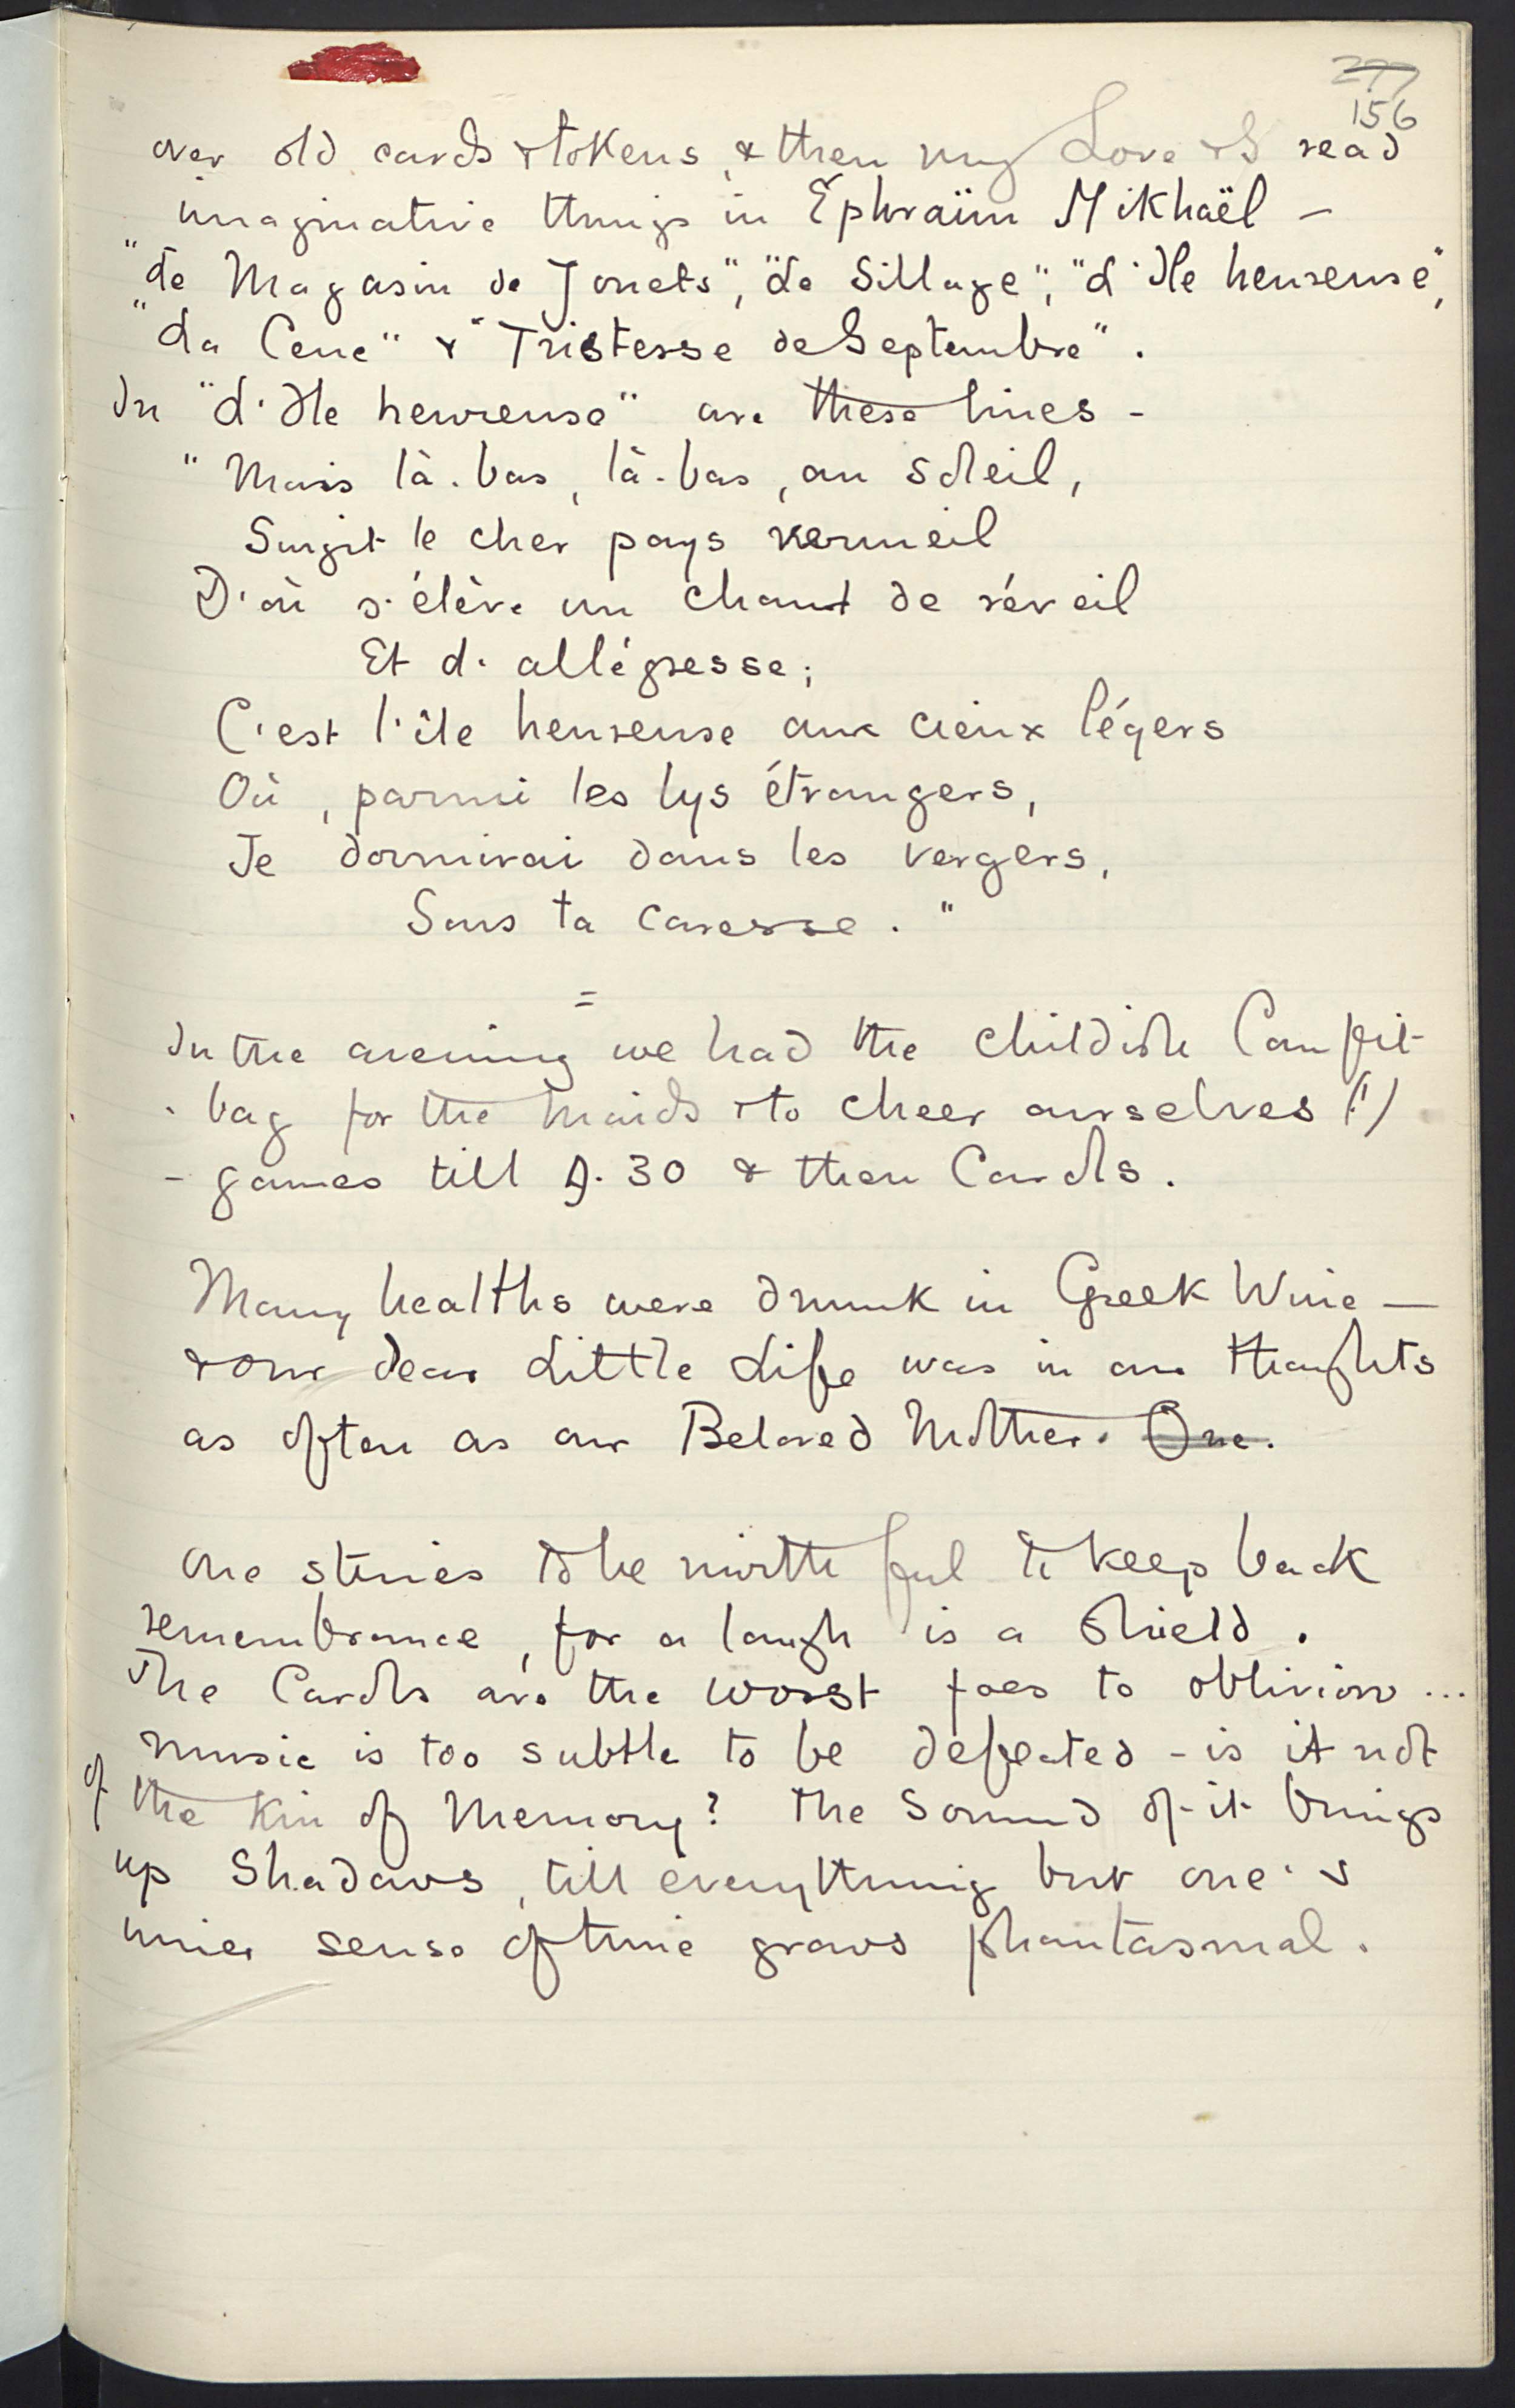 277
156
over old cards & tokens, & then my Love & I read
imaginative things in Ephraïm Mikhaël –
"Le Magasin de Jouets", "Le Sillage", "L'Ile heureuse",
"La Cene" & "Tristesse de Septembre".
In "L'Ile heureuse" are these lines –
"Mais là-bas, là-bas, au soleil,
Surgit le cher pays vermeil
D'où s'élève un chant de réveil
Et d'allégresse;
C'est l'île heureuse aux cieux légers
Où, parmi les lys étrangers,
Je dormirai dans les vergers,
Sous ta caresse."
=
In the evening we had the childish Comfit-
-bag for the Maids & to cheer ourselves (!)
– games till 9.30 & then Carols.
Many healths were drunk in Greek Wine —
& our dear Little Life was in our thoughts
as often as our Beloved Mother. One.
One strives to be mirthful to keep back
remembrance, for a laugh is a shield.
The Carols are the worst foes to oblivion ...
music is too subtle to be defeated – is it not
of the Kin of Memory? The Sound of it brings
up Shadows, till everything but one's
inner sense of time grows phantasmal.